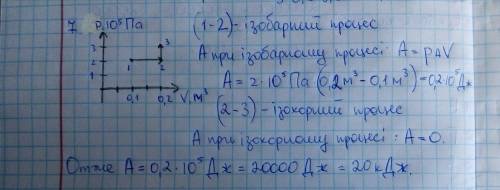 7. p,10⁵Па (1-2)-ізобарний процес
3
2
1
1 2 3
0,1 0,2 V,м³
А при ізобарному процесі: A = pΔV
A = 2·10⁵Па(0,2м³-0,1м³)=0,2·10⁵Дж
(2-3)-ізохорний процес
А при ізохорному процесі: A=0.
Отже A=0,2·10⁵Дж=20000Дж=20кДж.